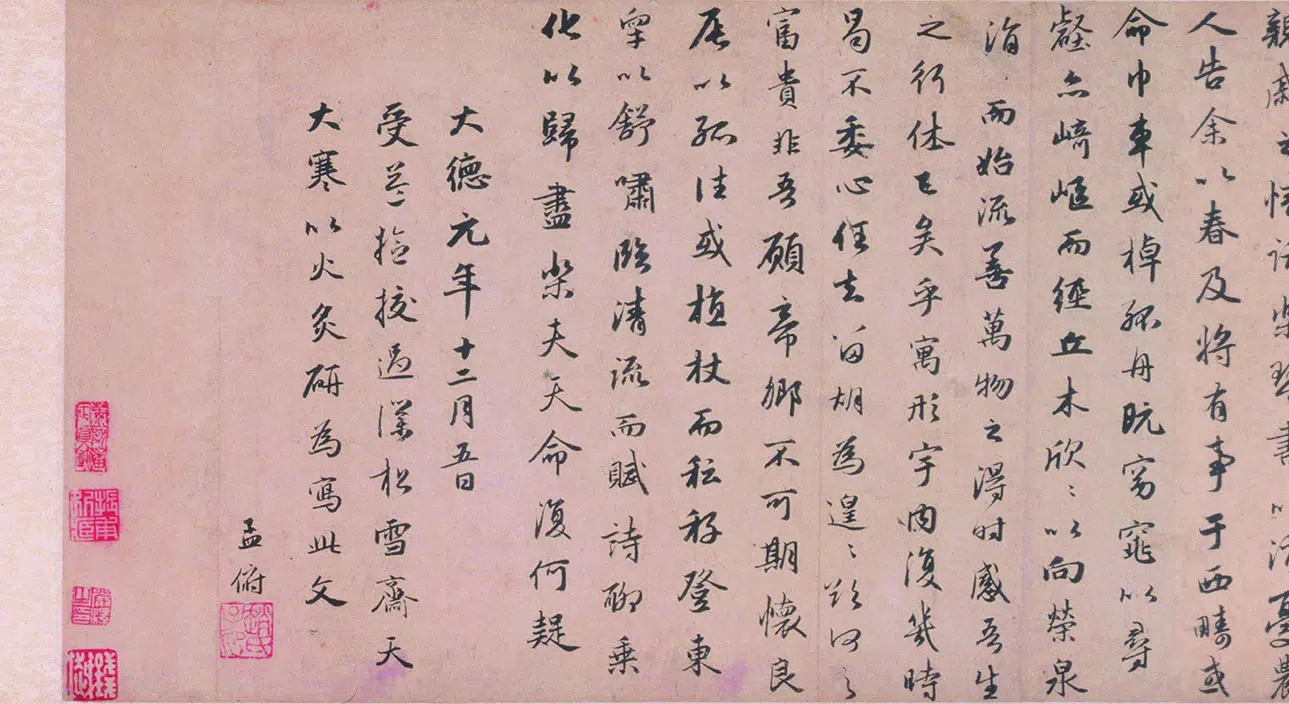 親戚之情話樂琴書以消憂農
人告余以春及將有事于西疇或
命巾車或棹孤舟既窈窕以尋
壑亦崎嶇而經丘木欣〻以向榮泉
涓〻而始流善萬物之得時感吾生
之行休已矣乎寓形宇內復幾時
曷不委心任去留胡為遑〻欲何之
富貴非吾願帝鄉不可期懷良
辰以孤往或植杖而耘耔登東
皋以舒嘯臨清流而賦詩聊乘
化以歸盡樂夫天命復何疑
大德元年十二月五日
受益檢校過僕松雪齋天
大寒以火炙研為寫此文
孟俯
趙氏子昂